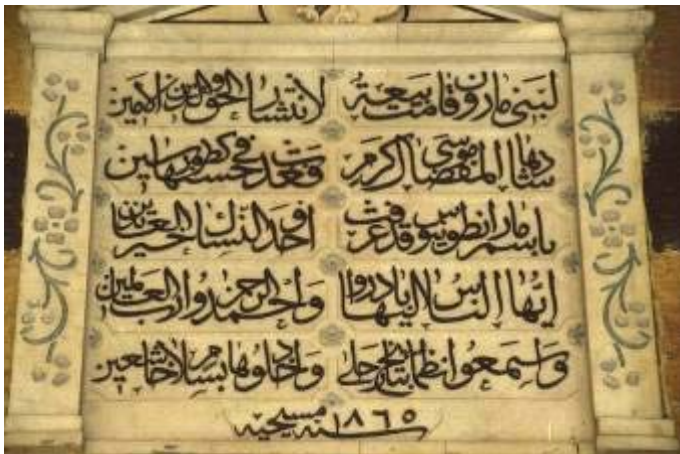 لبني مارون قامت بيعة لانتشار الحق والدين الامين
شادها المفضال موسى كرم وغدت في حسنها كطور سينين
باسم مار انطونيوس قد عرفت اوحد النساك خير العابدين
ايها الناس اليها بادروا واحمدوا الرحمن رب العالمين
واسمعوا نظما بتاريخ جلي وادخلوها بسلام خاشعين
سنة ١٨٦٥ مسيحيه